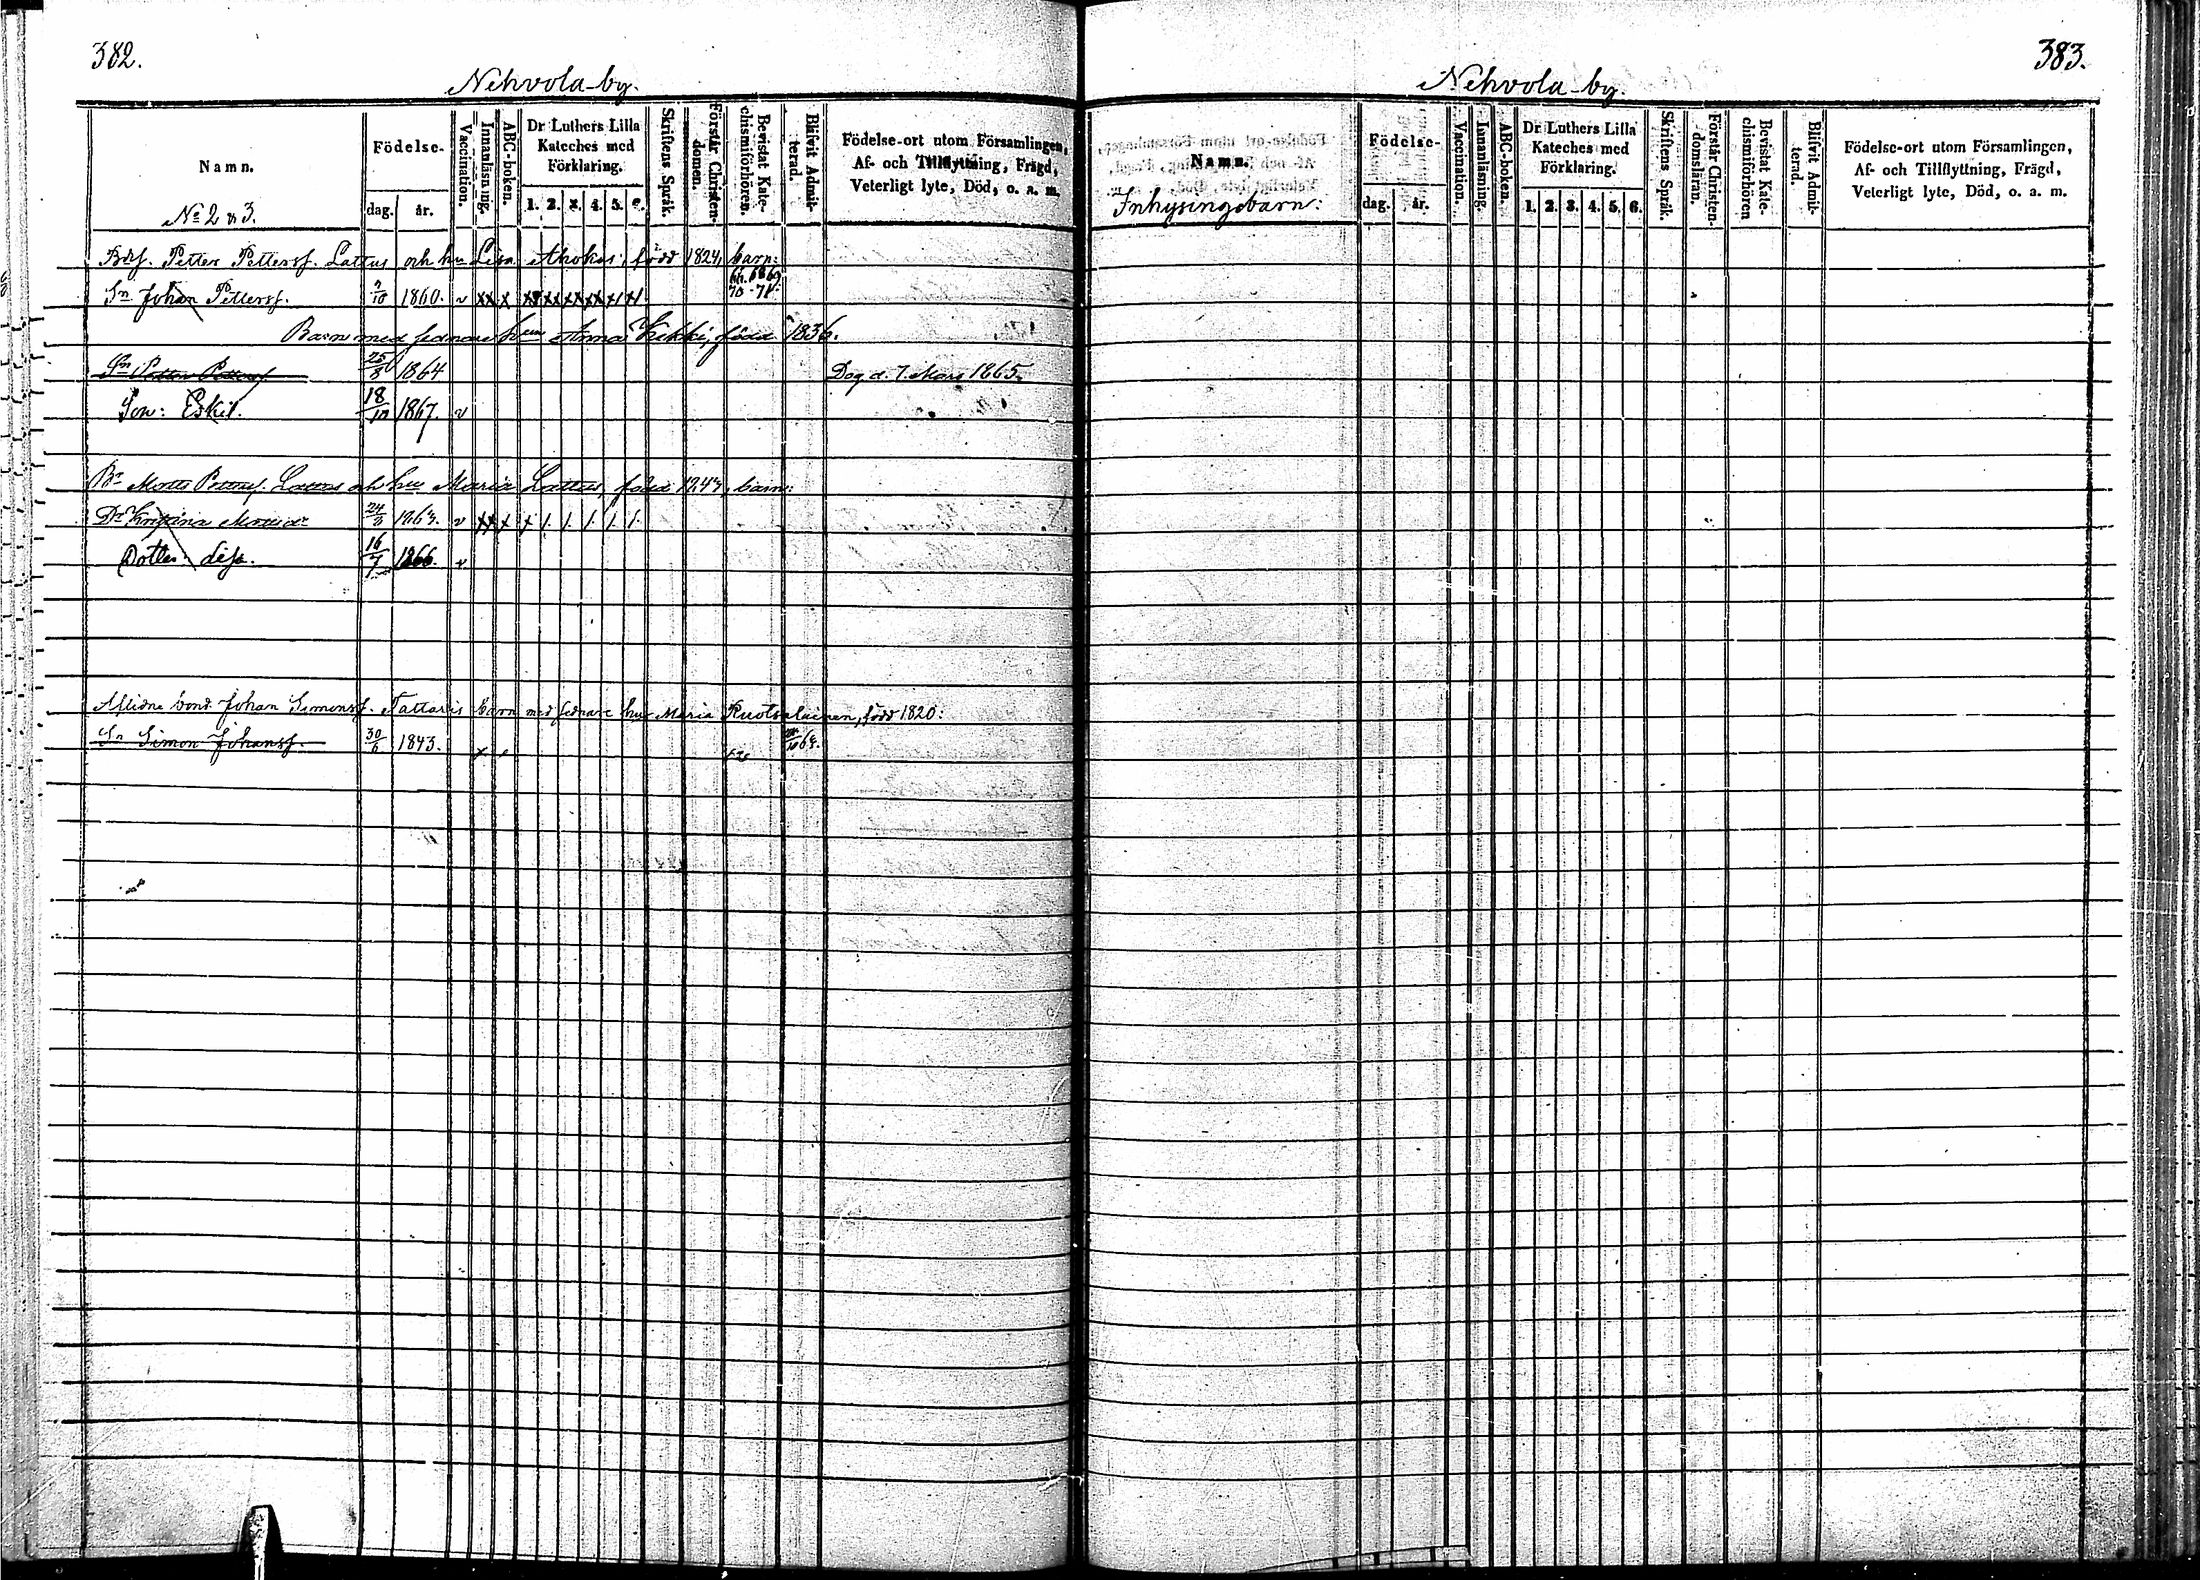 382.
Nehvola by.
Namn.
Födelse-
dag. år.
Vaccination.
Innanläsning.
ABC-boken.
Dr Luthers Lilla Kateches med Förklaring.
1. 2. 3. 4. 5. 6.
Skriftens Språk.
Förstår Christen-domen.
Bevistat Kate-chismiförhören.
Blifvit Admit-terad.
Födelse-ort utom Församlingen,
Af- och Tillflyttning, Frägd,
Veterligt lyte, Död, o. a. m.
No 2 & 3.
Petter Pettersf. Lattus och hu Lisa Ahokas, född 1824, barn:
Sn Johan Pettersf. 7/10 1860. v xx x
Barn med sednare hun Anna Kekki, född 1836.
Sn Petter Pettersf. 25/8 1864 Dog d. 7 Mars 1865.
Son: Eskil. 18/10 1867. v
Matts Lattus och hu Maria Lattus, född barn:
24/3 v xx x x 1. 1. 1. 1. 1. 1.
Dotter 16/7 1866. v
Aflidne bond. Johan Simonsf. Tattaris barn med sednare hu Maria Ruotsalainen, född 1820:
Sn Simon Johansf. 30/6 1843.
383.
Nehvola by.
Namn.
Inhysingsbarn:
Födelse-
dag. år.
Vaccination.
Innanläsning.
ABC-boken.
Dr Luthers Lilla Kateches med Förklaring.
1. 2. 3. 4. 5. 6.
Skriftens Språk.
Förstår Christen-domsläran.
Bevistat Kate-chismiförhören
Blifvit Admit-terad.
Födelse-ort utom Församlingen,
Af- och Tillflyttning, Frägd,
Veterligt lyte, Död, o. a. m.